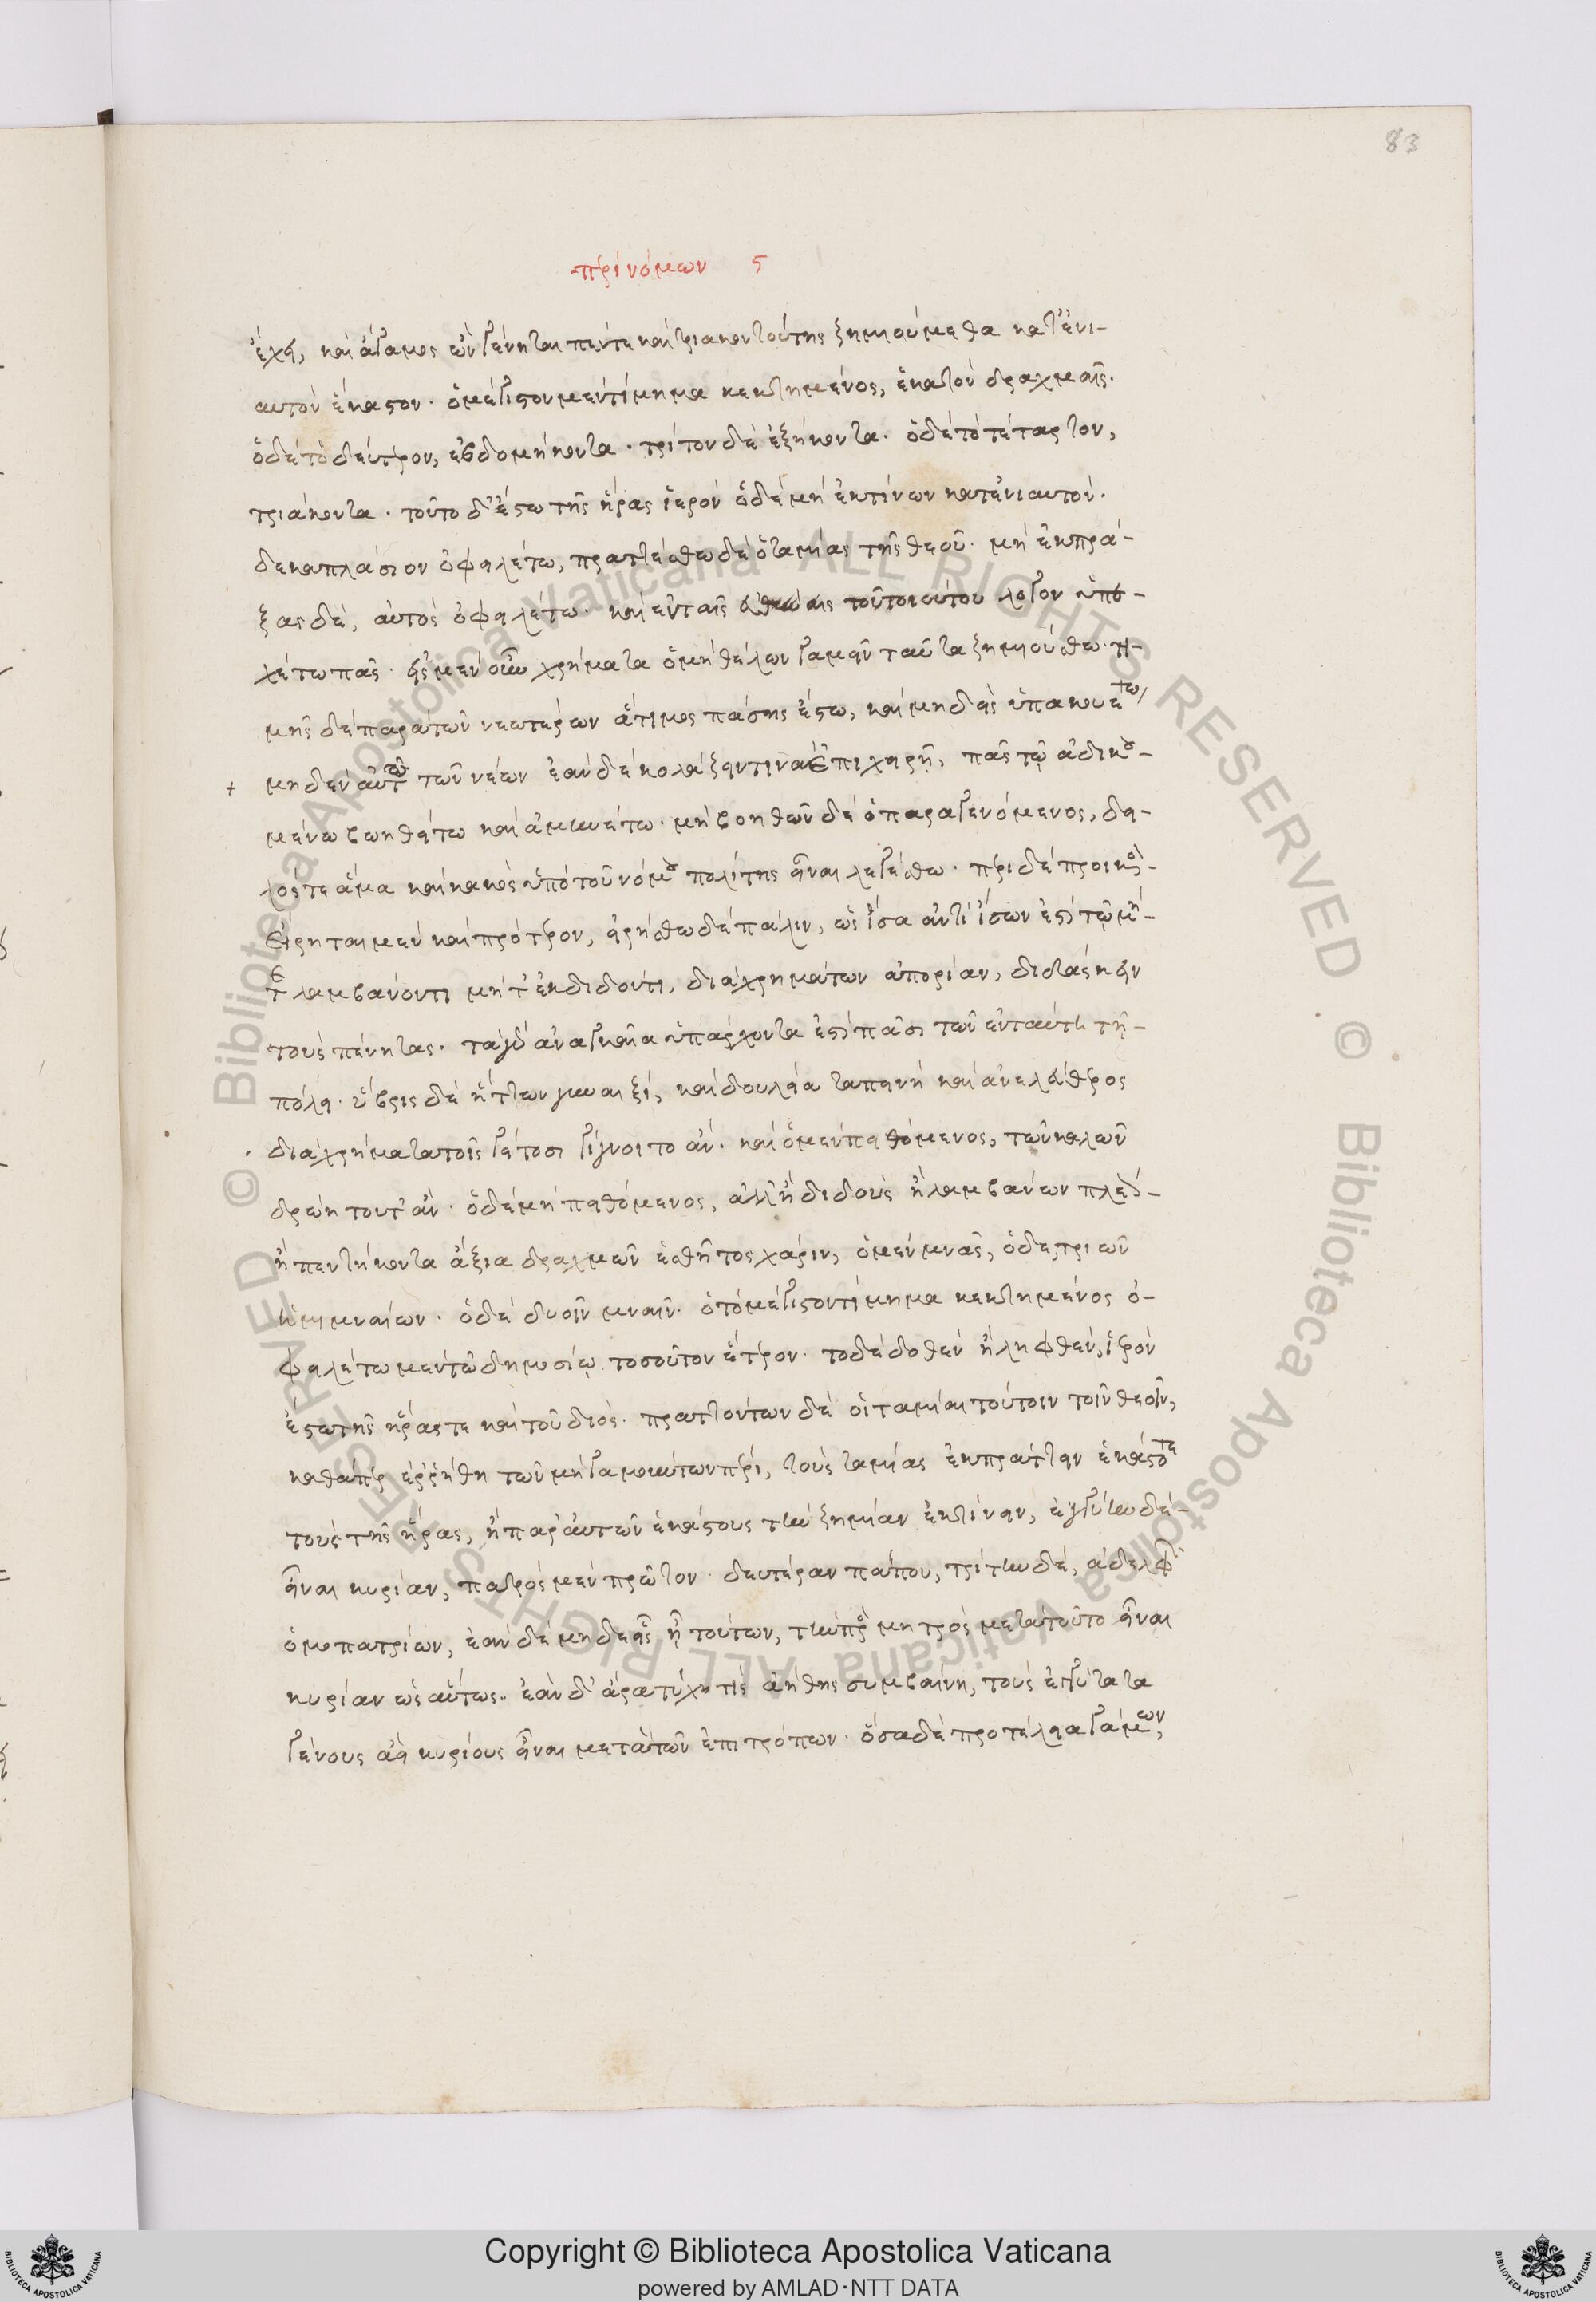 83
περὶ νόμων ϛ
ἔχῃ, καὶ ἄγαμος ὢν γένηται πέντε καὶ τριακοντούτης ζημιούμεθα κατ' ἐνι-
αυτὸν ἕκαστον· ὁ μέγιστον μὲν τίμημα κεκτημένος, ἑκατὸν δραχμαῖς·
ὁ δὲ τὸ δεύτερον, ἑβδομήκοντα· τρίτον δὲ ἑξήκοντα· ὁ δὲ τὸ τέταρτον,
τριάκοντα· τοῦτο δ' ἔστω τῆς ἥρας ἱερὸν ὁ δὲ μὴ ἐκτίνων κατ' ἐνιαυτὸν·
δεκαπλάσιον ὀφειλέτω, πραττέσθω δὲ ὁ ταμίας τῆς θεοῦ· μὴ ἐκπρά-
ξας δὲ, αὐτὸς ὀφειλέτω· καὶ ἐν ταῖς εὐθύναις τοῦ τοιούτου λόγον ὑπε-
χέτω πᾶς· εἰς μὲν οὖν χρήματα ὁ μὴ θέλων γαμεῖν ταῦτα ζημιούσθω· τι-
μῆς δὲ παρὰ τῶν νεωτέρων ἄτιμος πάσης ἔστω, καὶ μηδεὶς ὑπακουέτω
μηδὲν αὐτῶ τῶν νέων ἐὰν δὲ κολάζειν τινὰ ἐπιχειρῇ, πᾶς τῷ ἀδικου-
μένω βοηθείτω καὶ ἀμυνέτω· μὴ βοηθῶν δὲ ὁ παραγενόμενος, δει-
λός τε ἅμα καὶ κακὸς ὑπὸ τοῦ νόμου πολίτης εἶναι λεγέσθω· περὶ δὲ προικὸς-
εἴρηται μὲν καὶ πρότερον, εἰρήσθω δὲ πάλιν, ὡς ἴσα ἀντὶ ἴσων ἐστὶ τῷ μή-
τε λαμβάνοντι μήτ' ἐκδιδόντι, διὰ χρημάτων ἀπορίαν, διδάσκειν
τοὺς πένητας· τὰ γὰρ ἀναγκαῖα ὑπάρχοντα ἐστὶ πᾶσι τῶν ἐν ταύτῃ τῇ-
πόλει· ὕβρις δὲ ἧττων γυναιξὶ, καὶ δουλεία ταπεινὴ καὶ ἀνελεύθερος
διὰ χρήματα τοῖς γήμασι γίγνοιτο ἄν· καὶ ὁ μὲν πειθόμενος, τῶν καλῶν
δρώη τοῦτ' ἄν· ὁ δὲ μὴ πειθόμενος, ἀλλ' ἢ διδοὺς ἢ λαμβάνων πλέον-
ἢ πεντήκοντα ἄξια δραχμῶν ἐσθῆτος χάριν, ὁ μὲν μνᾶς, ὁ δὲ τριῶν
ἡμιμναίων· ὁ δὲ δυοῖν μναῖν· ὁ τὸ μέγιστον τίμημα κεκτημένος ὀ-
φειλέτω μὲν τῶ δημοσίῳ τοσοῦτον ἕτερον· τὸ δὲ δοθὲν ἢ ληφθὲν, ἱερὸν
ἔστω τῆς ἥρας τε καὶ τοῦ διός· πραττόντων δὲ οἱ ταμίαι τούτοιν τοῖν θεοῖν,
καθάπερ ἐρρήθη τῶν μὴ γαμούντων πέρι, τοὺς ταμίας ἐκπράττειν ἑκάστοτε
τοὺς τῆς ἥρας, ἢ παρ' αὐτῶν ἑκάστους τὴν ζημίαν ἐκτίνειν, ἐγγύην δὲ-
εἶναι κυρίαν, πατρὸς μὲν πρῶτον· δευτέραν πάπου, τρίτην δὲ, ἀδελφῶν
ὁμοπατρίων, ἐὰν δὲ μηδεὶς ᾖ τούτων, τὴν πρὸς μητρὸς μετὰ τοῦτο εἶναι
κυρίαν ὡσαύτως. ἐὰν δ' ἄρα τύχη τις ἀήθης συμβαίνη, τοὺς ἐγγύτατα
γένους ἀεὶ κυρίους εἶναι μετὰ τῶν ἐπιτρόπων· ὅσα δὲ προτέλεια γάμων,
Copyright © Biblioteca Apostolica Vaticana
powered by AMLAD·NTT DATA